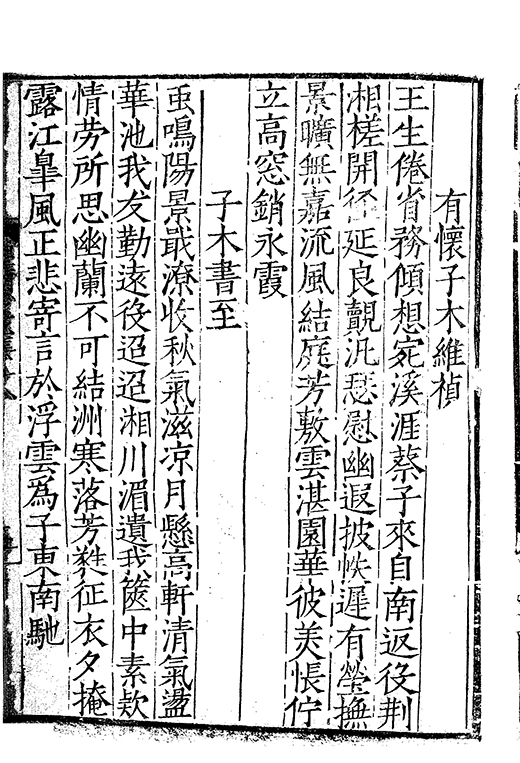 有懷子木維楨
王生倦省務傾想宛溪涯蔡子來自南返役荆
湘槎開徑延良覿汎瑟慰幽遐披帙遲有瑩撫
景曠無嘉流風結庭芳敷雲湛園華彼美悵佇
立高窓銷永霞
子木書至
䖝鳴陽景戢潦收秋氣滋凉月懸高軒清氣盪
華池我友勤遠役迢迢湘川湄遺我篋中素欵
情劳所思幽蘭不可結洲寒落芳蕤征衣夕掩
露江臯風正悲寄言於浮雲為子東南馳